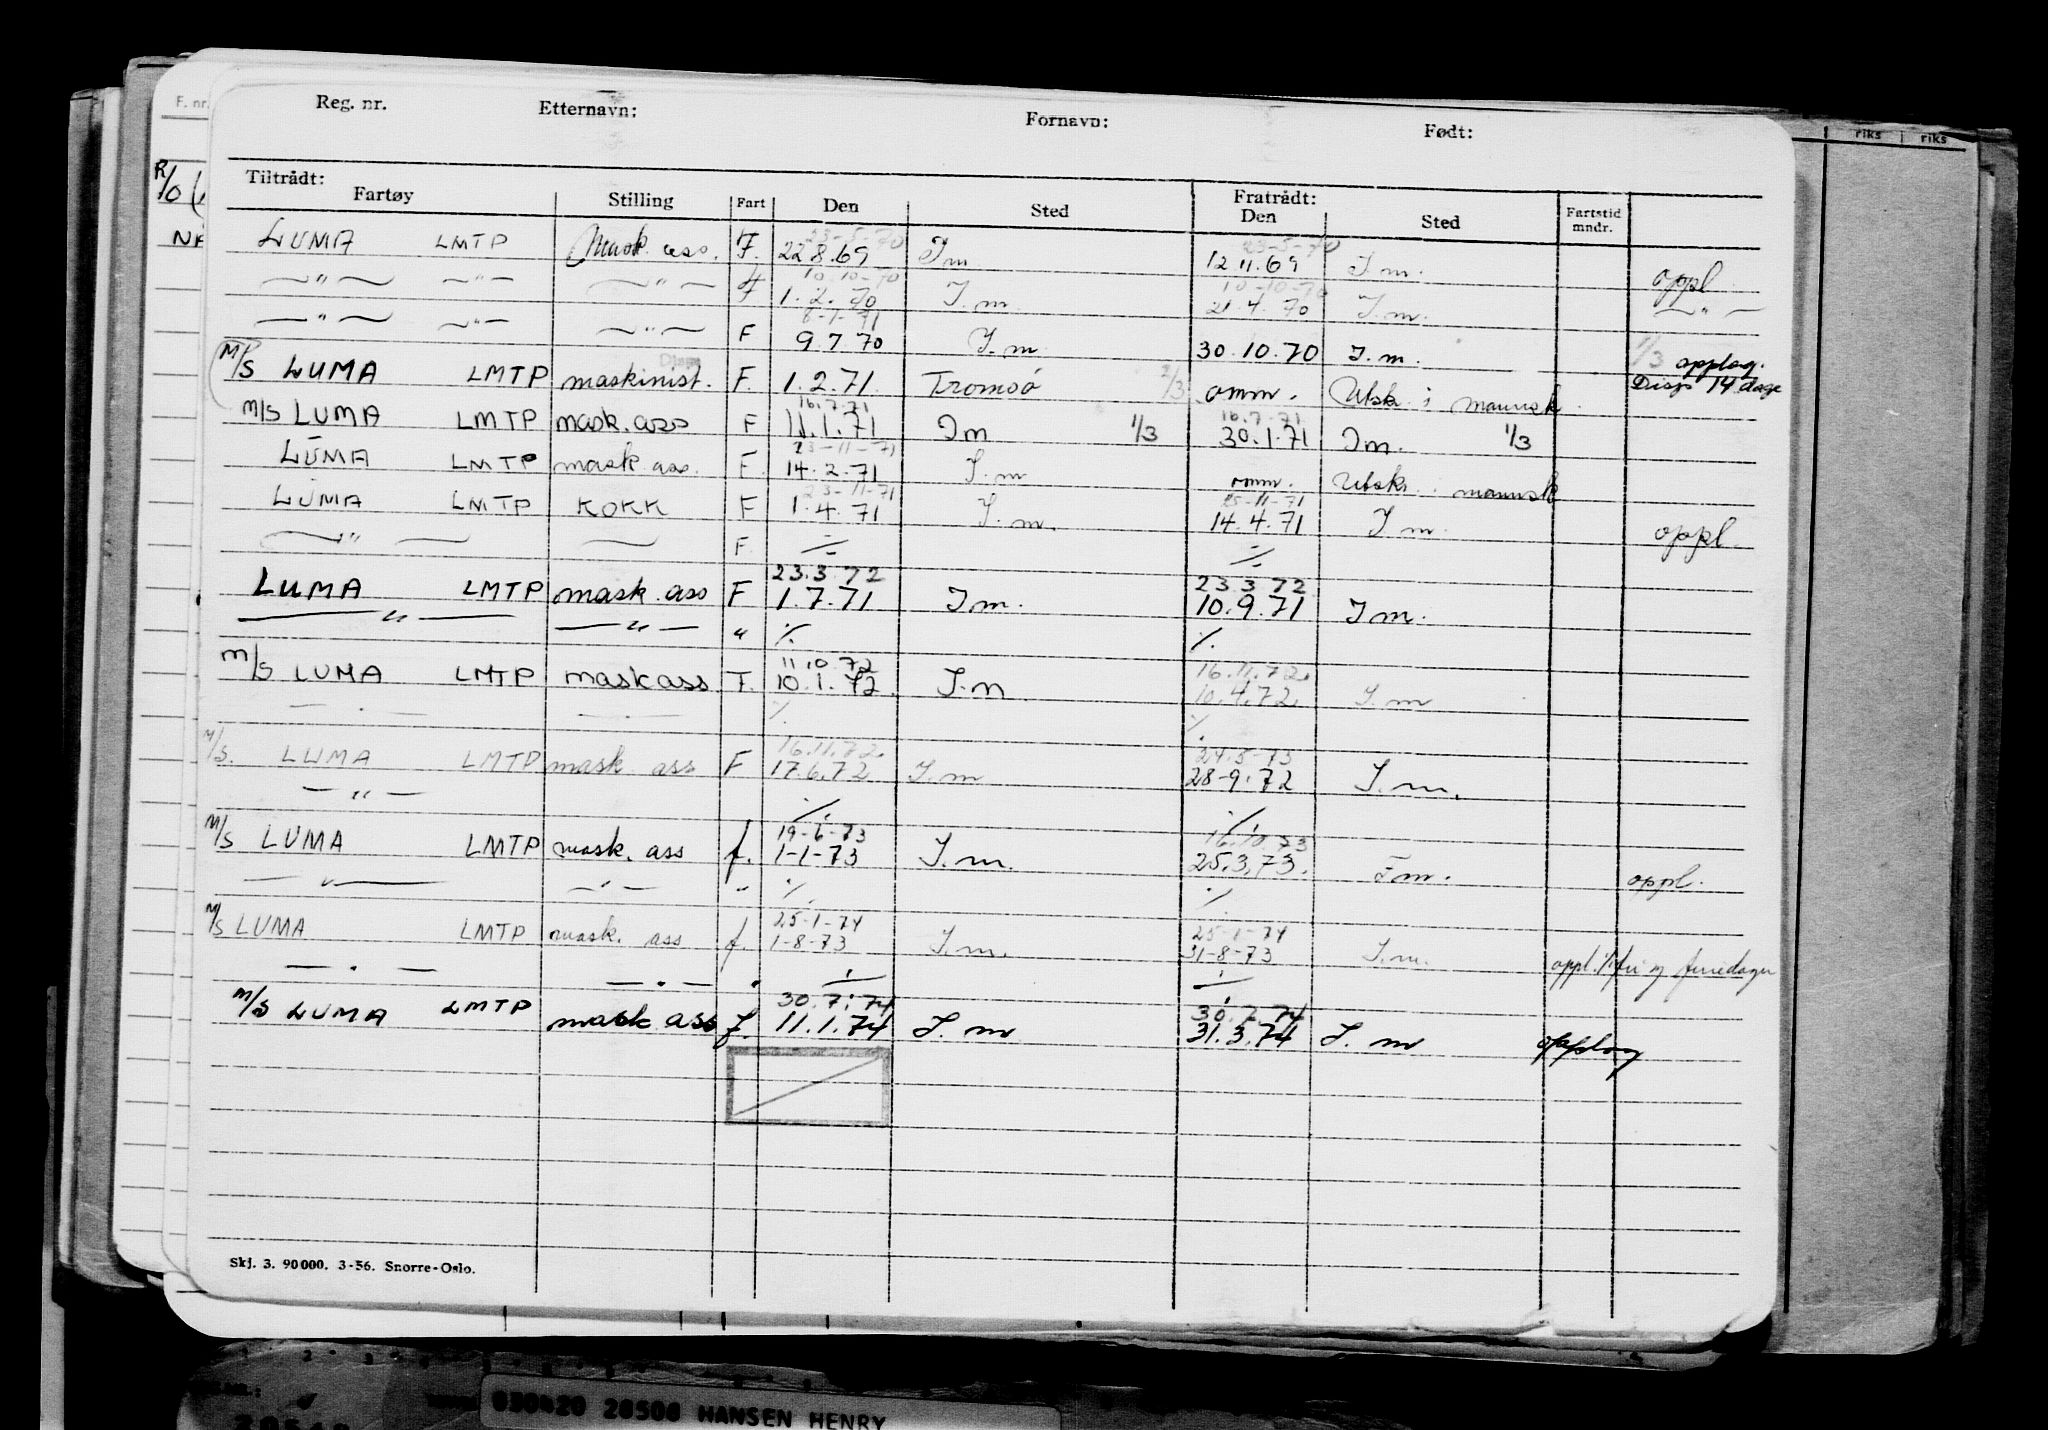 Reg. nr. Etternavn: Fornavn: Født:
Tiltrådt: Fratrådt:
Fartøy Stilling Fart Den Sted Den Sted Fartstid mndr.
F. nr.
riks riks
R/O
23-5-70 23-5-70
LUMA LMTP Mask. ass. F. 22.8.69 I m 12.11.69 I. m. oppl
10-10-70 10-10-70
— " — — " — — " — F 1.2.70 I. m. 21.4.70 I. m. — " —
8-1-71
— " — — " — — " — F 9.7.70 I. m 30.10.70 I. m. 1/3 opplag.
M/S LUMA LMTP maskinist. F. 1.2.71 Tromsø 2/3 omm. Utsk. i mannsk Disp 14 dage
16.7.71 16.7.71
M/S LUMA LMTP mask. ass F 11.1.71 I m 1/3 30.1.71 I m. 1/3
23-11-71
LUMA LMTP mask. ass. F. 14.2.71 I. m omm. Utskr. i mannsk
23-11-71 25-11-71
LUMA LMTP KOKK F 1.4.71 I. m. 14.4.71 I m. oppl.
— " — — — F. ./. ./.
23.3.72 23.3.72
LUMA LMTP mask. ass F 1.7.71 I m. 10.9.71 I m.
— " — — " — " ./. ./.
11.10.72 16.11.72.
M/S LUMA LMTP mask ass F. 10.1.72. I. m 10.4.72. I. m
— . — — . — ./. ./.
16.11.72. 24.5-73
M/S. LUMA LMTP mask ass F 17.6.72 I. m 28-9.72 I. m.
— " — ./. ./.
19-6-73 16.10.73
M/S LUMA LMTP mask. ass f. 1-1-73 I. m. 25.3.73. I m. oppl.
— " — — " — " ./. ./.
25-1-74 25-1-74
M/S LUMA LMTP mask. ass f. 1-8-73 I. m. 31-8-73 I. m. oppl. fri og feriedager
— . — — . — " ./. ./.
30.7.74 30.7.74
M/S LUMA LMTP mask ass f. 11.1.74 I. m 31.3.74 I. m opplag
Skj. 3. 90000. 3-56. Snorre-Oslo.
030420 20500 HANSEN HENRY